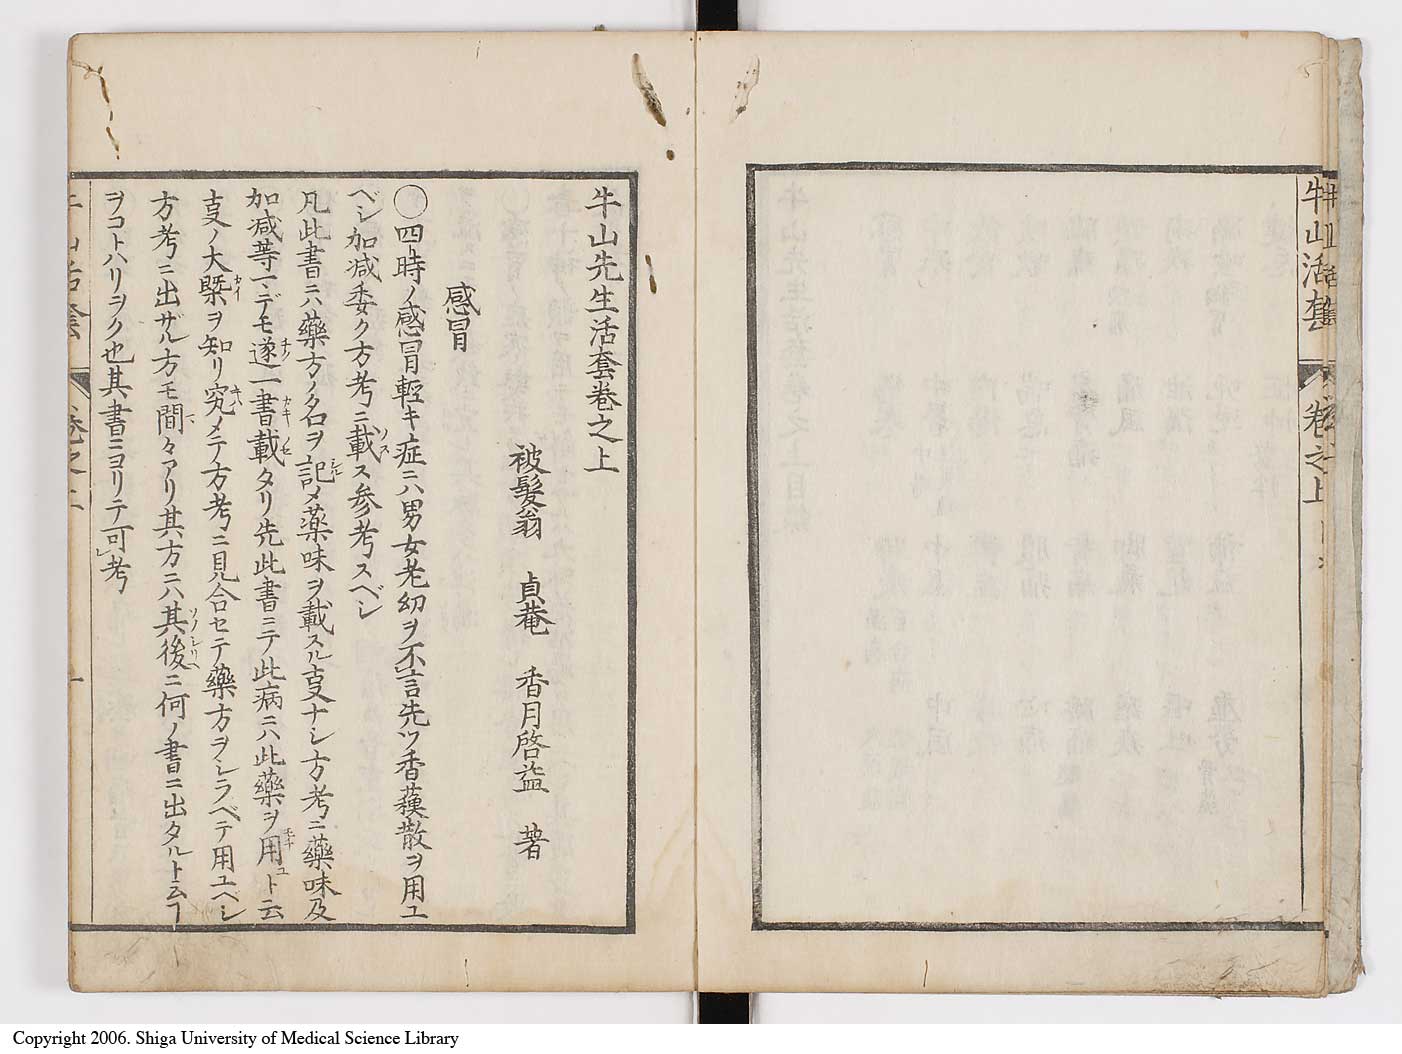 牛山活套
卷之上
牛山先生活套卷之上
被髮翁 貞菴 香月啓益 著
感冒
〇四時ノ感冒輕キ症ニハ男女老幼ヲ不言先ツ香蘓散ヲ用ユ
ベシ加减委ク方考ニ載ス参考スベシ
凡此書ニハ藥方ノ名ヲ記メ藥味ヲ載スル叓ナシ方考ニ藥味及
加减等マデモ遂一書載タリ先此書ニテ此病ニハ此藥ヲ用ユト云
叓ノ大槩ヲ知リ究メテ方考ニ見合セテ藥方ヲシラベテ用ユベシ
方考ニ出ザル方モ間々アリ其方ニハ其後ニ何ノ書ニ出タルト云ヿ
ヲコトハリヲク也其書ニヨリテ可考
Copyright 2006. Shiga University of Medical Science Library